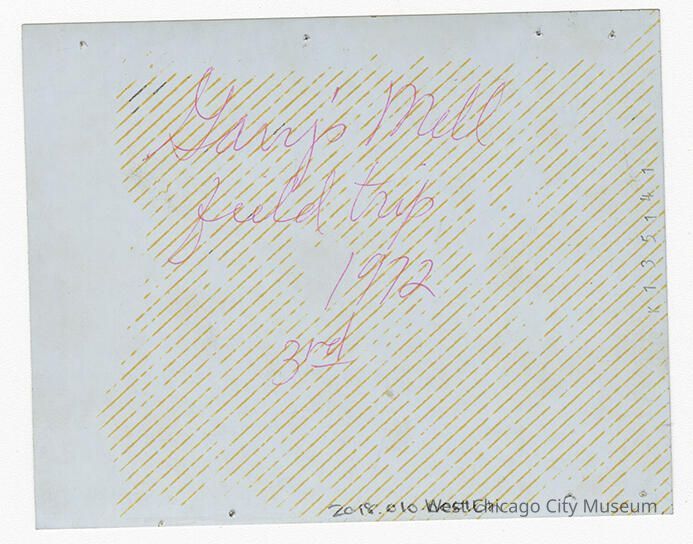 Gary's Mill
field trip
1972
3rd
K135141
2018.010
West Chicago City Museum